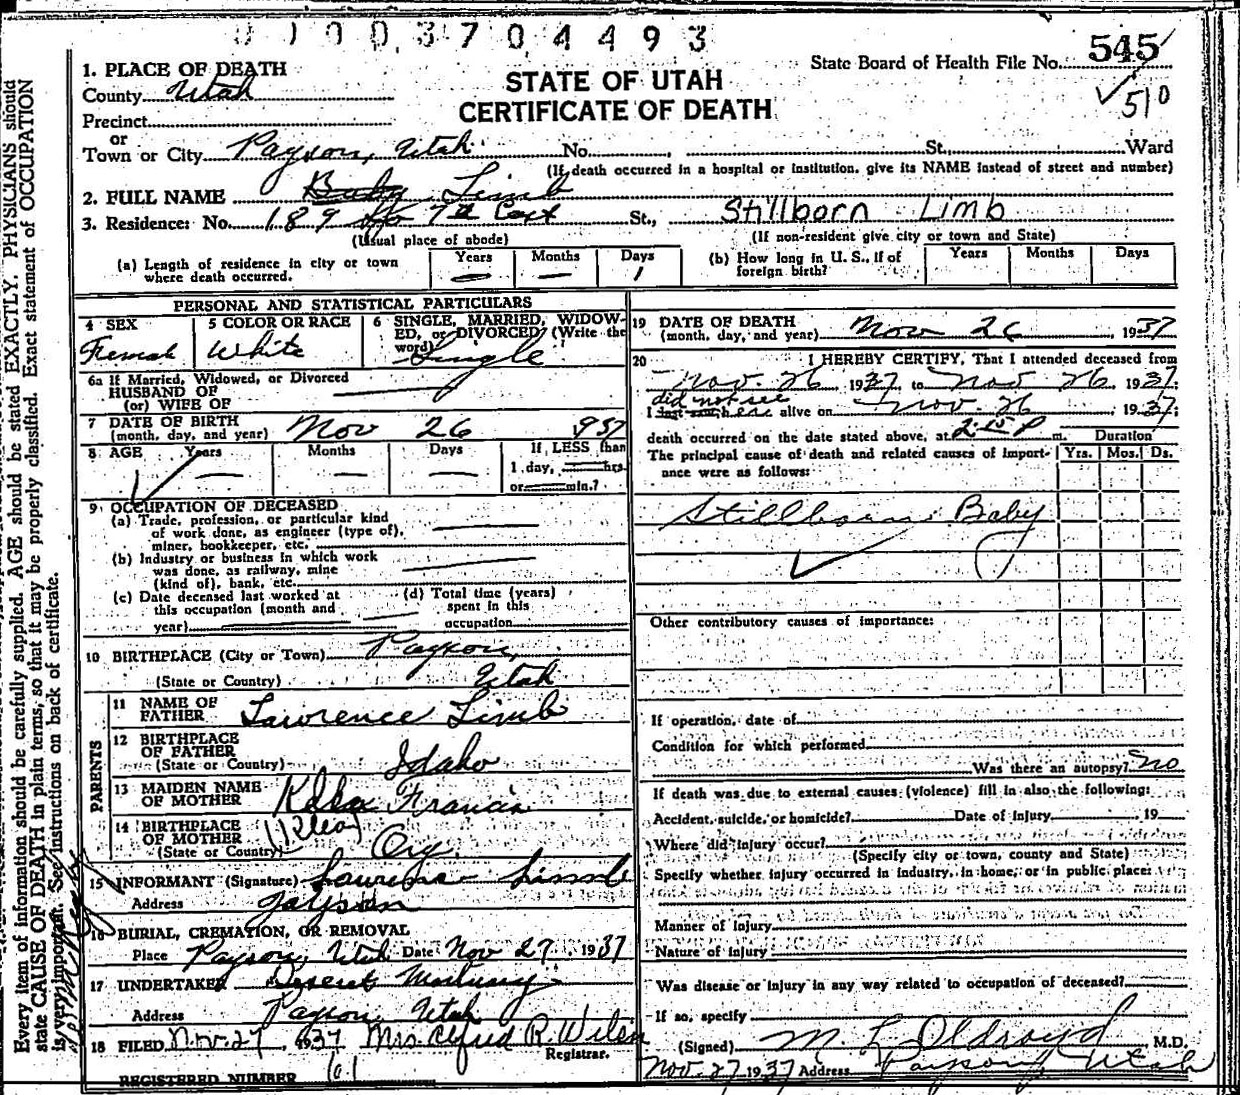 0 1 0 0 3 7 0 4 4 9 3
State Board of Health File No. 545
510
STATE OF UTAH
CERTIFICATE OF DEATH
1. PLACE OF DEATH
County Utah
Precinct
or
Town or City Payson, Utah No. , St. Ward
(If death occurred in a hospital or institution, give its NAME instead of street and number)
2. FULL NAME Baby Limb
3. Residence: No. 189 St., Stillborn Limb
(Usual place of abode) (If non-resident give city or town and State)
(a) Length of residence in city or town where death occurred. Years — Months — Days 1
(b) How long in U. S., if of foreign birth? Years Months Days
PERSONAL AND STATISTICAL PARTICULARS
4 SEX Female
5 COLOR OR RACE White
6 SINGLE, MARRIED, WIDOWED, or DIVORCED? (Write the word) Single
6a If Married, Widowed, or Divorced
HUSBAND OF
(or) WIFE OF
7 DATE OF BIRTH
(month, day, and year) Nov 26 937
8 AGE Years — Months — Days — If LESS than
1 day, hrs.
or min.?
9 OCCUPATION OF DECEASED
(a) Trade, profession, or particular kind
of work done, as engineer (type of),
miner, bookkeeper, etc.
(b) Industry or business in which work
was done, as railway, mine
(kind of), bank, etc.
(c) Date deceased last worked at
this occupation (month and
year)
(d) Total time (years)
spent in this
occupation
10 BIRTHPLACE (City or Town) Payson,
(State or Country) Utah
PARENTS
11 NAME OF
FATHER Lawrence Limb
12 BIRTHPLACE
OF FATHER
(State or Country) Idaho
13 MAIDEN NAME
OF MOTHER Francis
14 BIRTHPLACE
OF MOTHER
(State or Country) Ore.
15 INFORMANT (Signature) Lawrence Limb
Address Payson
16 BURIAL, CREMATION, OR REMOVAL
Place Payson, Utah Date Nov 27, 1937
17 UNDERTAKER Deseret Mortuary
Address Payson Utah
18 FILED Nov. 27, 1937 Mrs. Alfred R. Wilson
Registrar.
REGISTERED NUMBER 101
19 DATE OF DEATH
(month, day, and year) Nov 26 1937
20 I HEREBY CERTIFY, That I attended deceased from
Nov. 26 1937 to Nov 26 1937;
did not see
I last saw h er alive on Nov. 26 1937;
death occurred on the date stated above, at 2:15 P m.
Duration
Yrs. Mos. Ds.
The principal cause of death and related causes of importance were as follows:
Stillborn Baby
Other contributory causes of importance:
If operation, date of
Condition for which performed
Was there an autopsy? no
If death was due to external causes (violence) fill in also the following:
Accident, suicide, or homicide? Date of injury 19
Where did injury occur?
(Specify city or town, county and State)
Specify whether injury occurred in industry, in home, or in public place:
Manner of injury
Nature of injury
Was disease or injury in any way related to occupation of deceased?
If so, specify
(Signed) M L Oldroyd M.D.
Nov. 27 1937 Address Payson, Utah
Every item of information should be carefully supplied. AGE should be stated EXACTLY. PHYSICIANS should
state CAUSE OF DEATH in plain terms, so that it may be properly classified. Exact statement of OCCUPATION
is very important. See instructions on back of certificate.